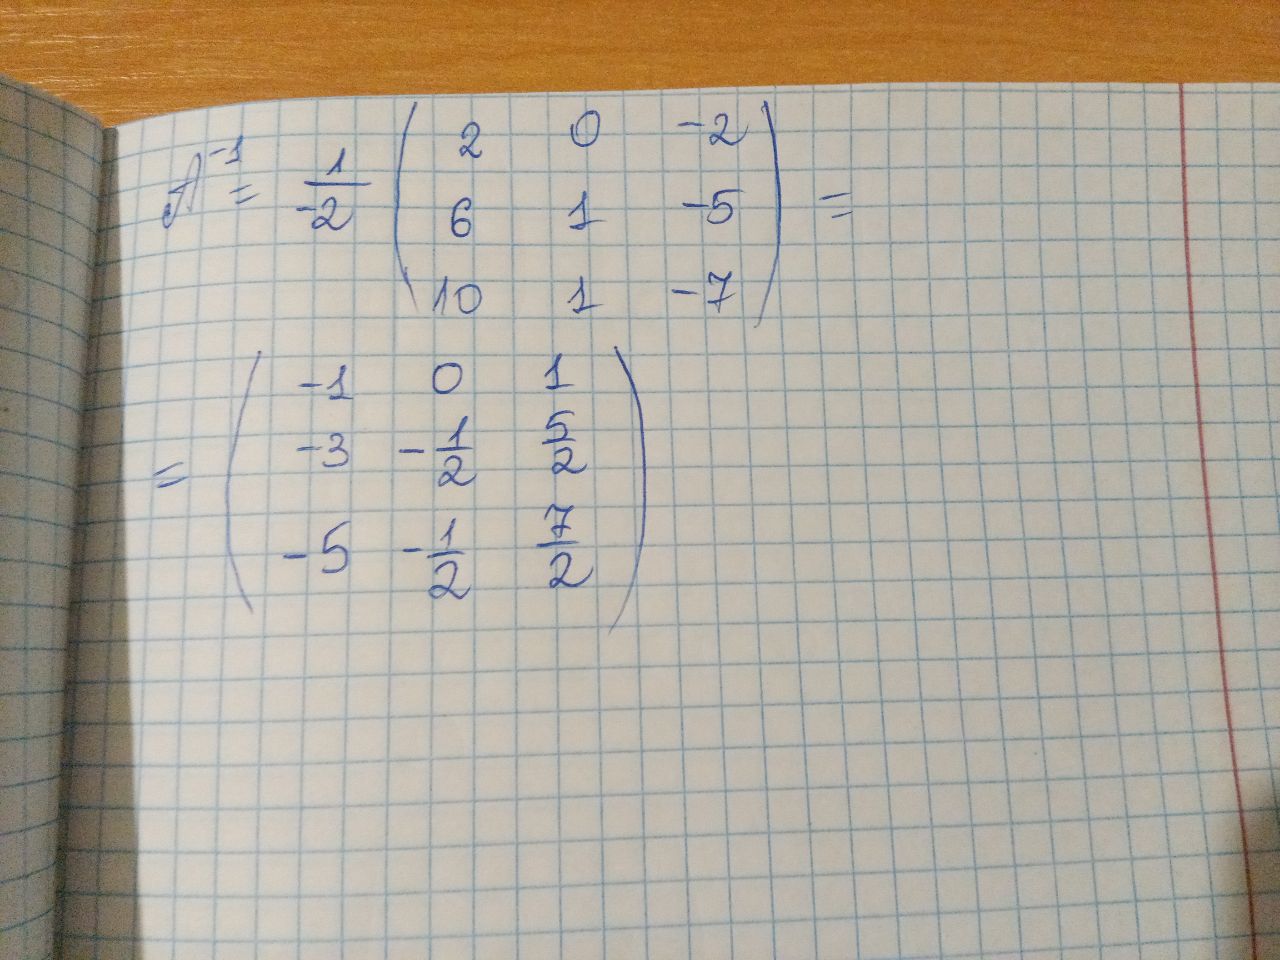 A⁻¹ = 1/-2 ( 2 0 -2
6 1 -5
10 1 -7 ) =
= ( -1 0 1
-3 -1/2 5/2
-5 -1/2 7/2 )